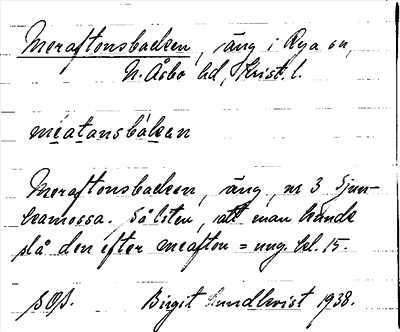 Meraftonsbacken, äng i Rya sn,
N. Åsbo hd, Krist. l.
méatansbàken
Meraftonsbacken, äng, nr 3 Ljun-
kamossa. Så liten, att man hande
slå den efter meafton = ung. kl. 15.
Birgit Lundkvist 1938.